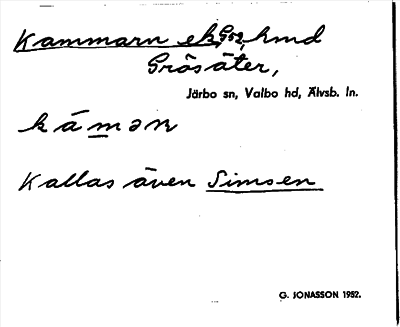 Kammarn ek, G52, hmd
Gräsäter,
Järbo sn, Valbo hd, Älvsb. ln.
kámən
Kallas även Simsen
G. JONASSON 1952.